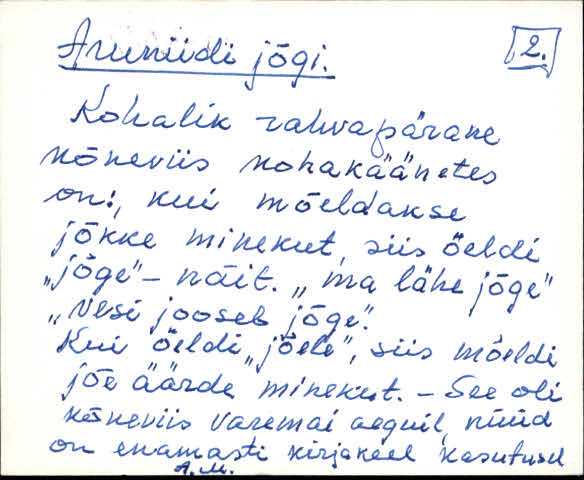 Aruniidi jõgi.
2.
Kohalik rahvapärane
kõneviis kohakäänetes
on:, kui mõeldakse
jõkke minekut, siis öeldi
„jõge" – näit. „ma lähe jõge"
„vesi jooseb jõge".
Kui öeldi „jõele", siis mõeldi
jõe äärde minekut. – See oli
kõneviis varemai aeguil, nüüd
on enamasti kirjakeel kasutusel
A.M.